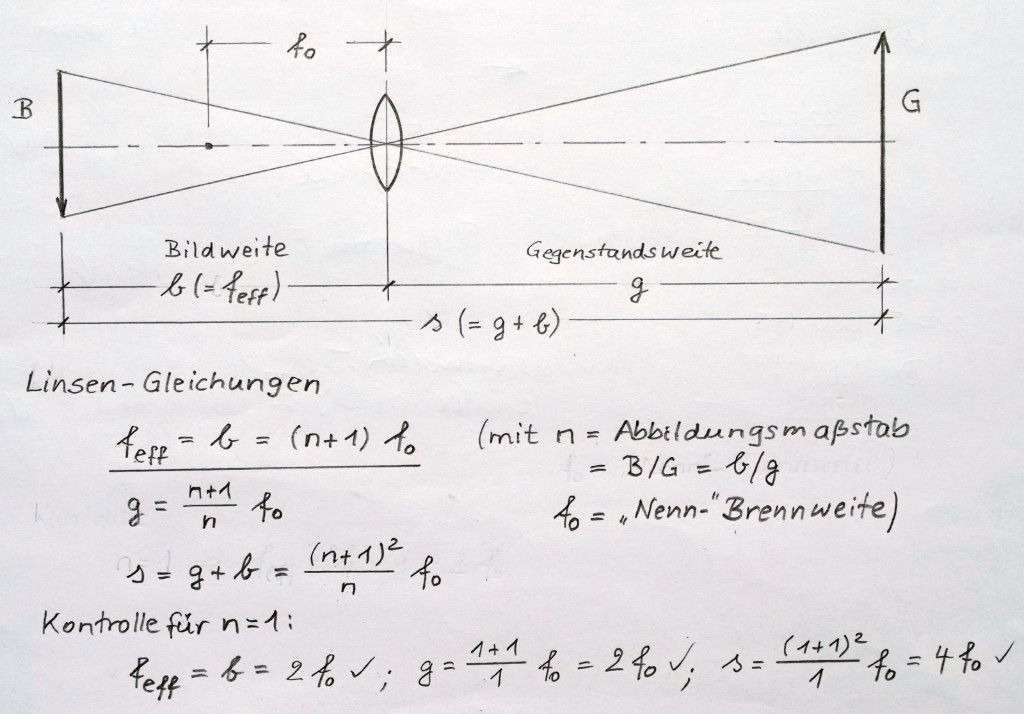 f₀
B
G
Bildweite
Gegenstandsweite
b (= f_eff)
g
s (= g + b)
Linsen-Gleichungen
f_eff = b = (n+1) f₀ (mit n = Abbildungsmaßstab
= B/G = b/g
g = (n+1)/n f₀
f₀ = „Nenn-“Brennweite)
s = g + b = (n+1)²/n f₀
Kontrolle für n=1:
f_eff = b = 2 f₀ ✓; g = (1+1)/1 f₀ = 2 f₀ ✓; s = (1+1)²/1 f₀ = 4 f₀ ✓